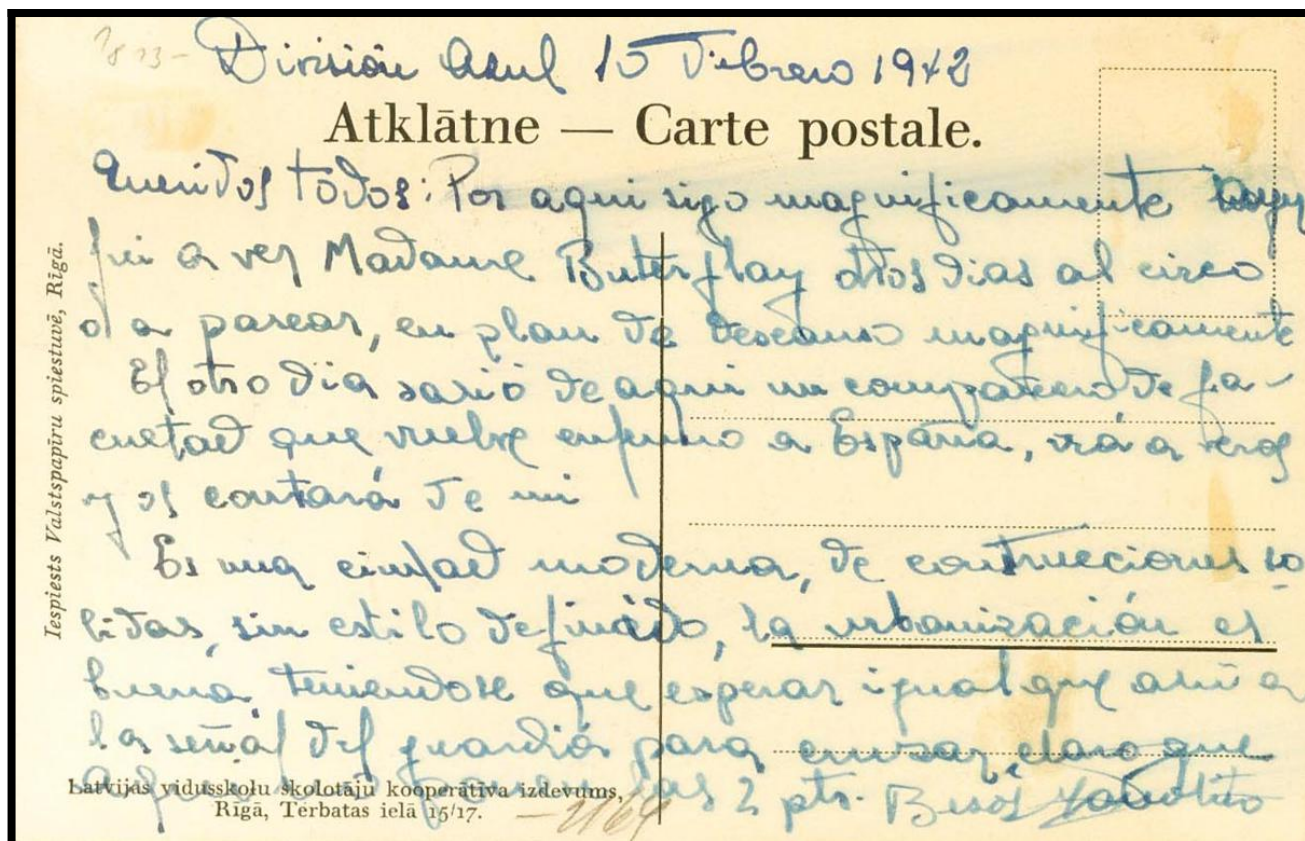 División Asul 15 Febrero 1942
Atklātne — Carte postale.
Queridos todos: Por aqui sigo magnificamente
fui a ver Madame Buterflay otros dias al circo
o a pasear, en plan de descanso magnificamente
El otro dia sarió de aqui un compañero de fa-
cultad que vuelve enfermo a España, irá a veros
y os contará de mi
Es una ciudad moderna, de construcciones so
lidas, sin estilo definido, la urbanización es
buena, teniendose que esperar igual que ahi a
la señal del guardia para cruzar, claro que
aqui 2 pts. Besos
Iespiests Valstspapīru spiestuvē, Rīgā.
Latvijas vidusskolu skolotāju kooperātīva izdevums,
Rīgā, Tērbatas ielā 15/17.